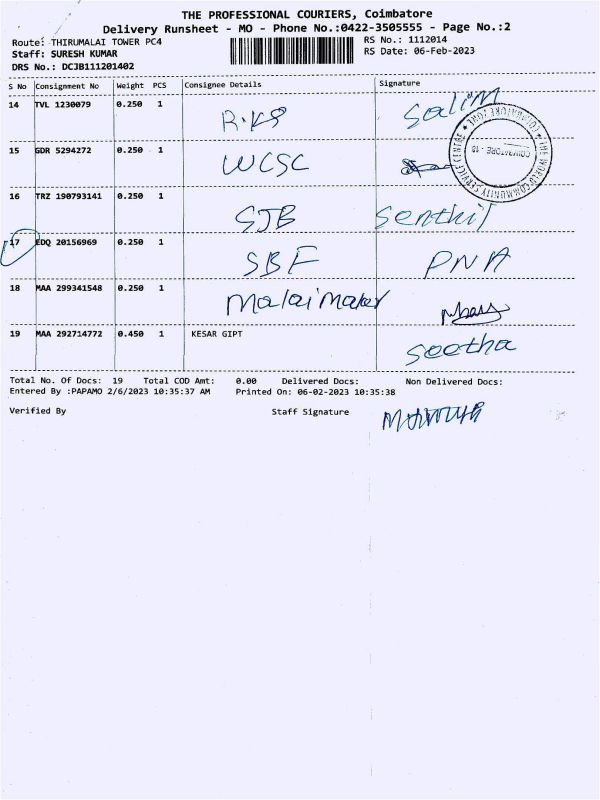 THE PROFESSIONAL COURIERS, Coimbatore
Delivery Runsheet - MO - Phone No.:0422-3505555 - Page No.:2
Route: THIRUMALAI TOWER PC4
RS No.: 1112014
Staff: SURESH KUMAR
RS Date: 06-Feb-2023
DRS No.: DCJB111201402
S No Consignment No Weight PCS Consignee Details Signature
14 TVL 1230079 0.250 1 Salim
R.K8
15 GDR 5294272 0.250 1
WCSC
16 TRZ 190793141 0.250 1
SJB Senthil
17 EDQ 20156969 0.250 1
SBF PNA
18 MAA 299341548 0.250 1
malaimaler
19 MAA 292714772 0.450 1 KESAR GIPT
Seetha
Total No. Of Docs: 19 Total COD Amt: 0.00 Delivered Docs: Non Delivered Docs:
Entered By :PAPAMO 2/6/2023 10:35:37 AM Printed On: 06-02-2023 10:35:38
Verified By Staff Signature
THE WORLD COMMUNITY SERVICE CENTRE
COIMBATORE ZONE
COIMBATORE - 18